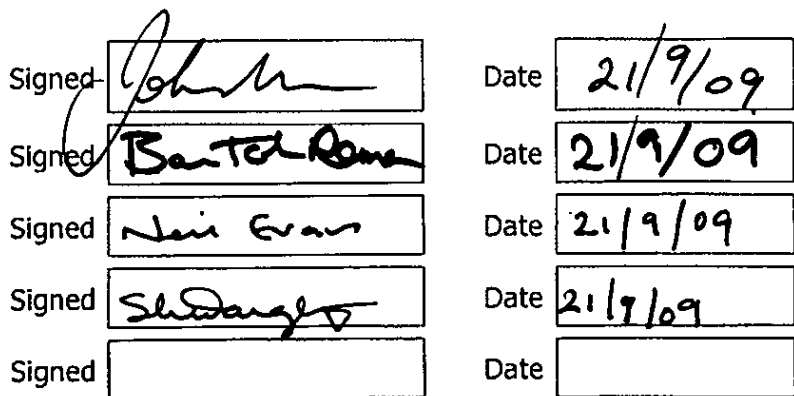 Signed Date 21/9/09
Signed Date 21/9/09
Signed Neil Evans Date 21/9/09
Signed Date 21/9/09
Signed Date